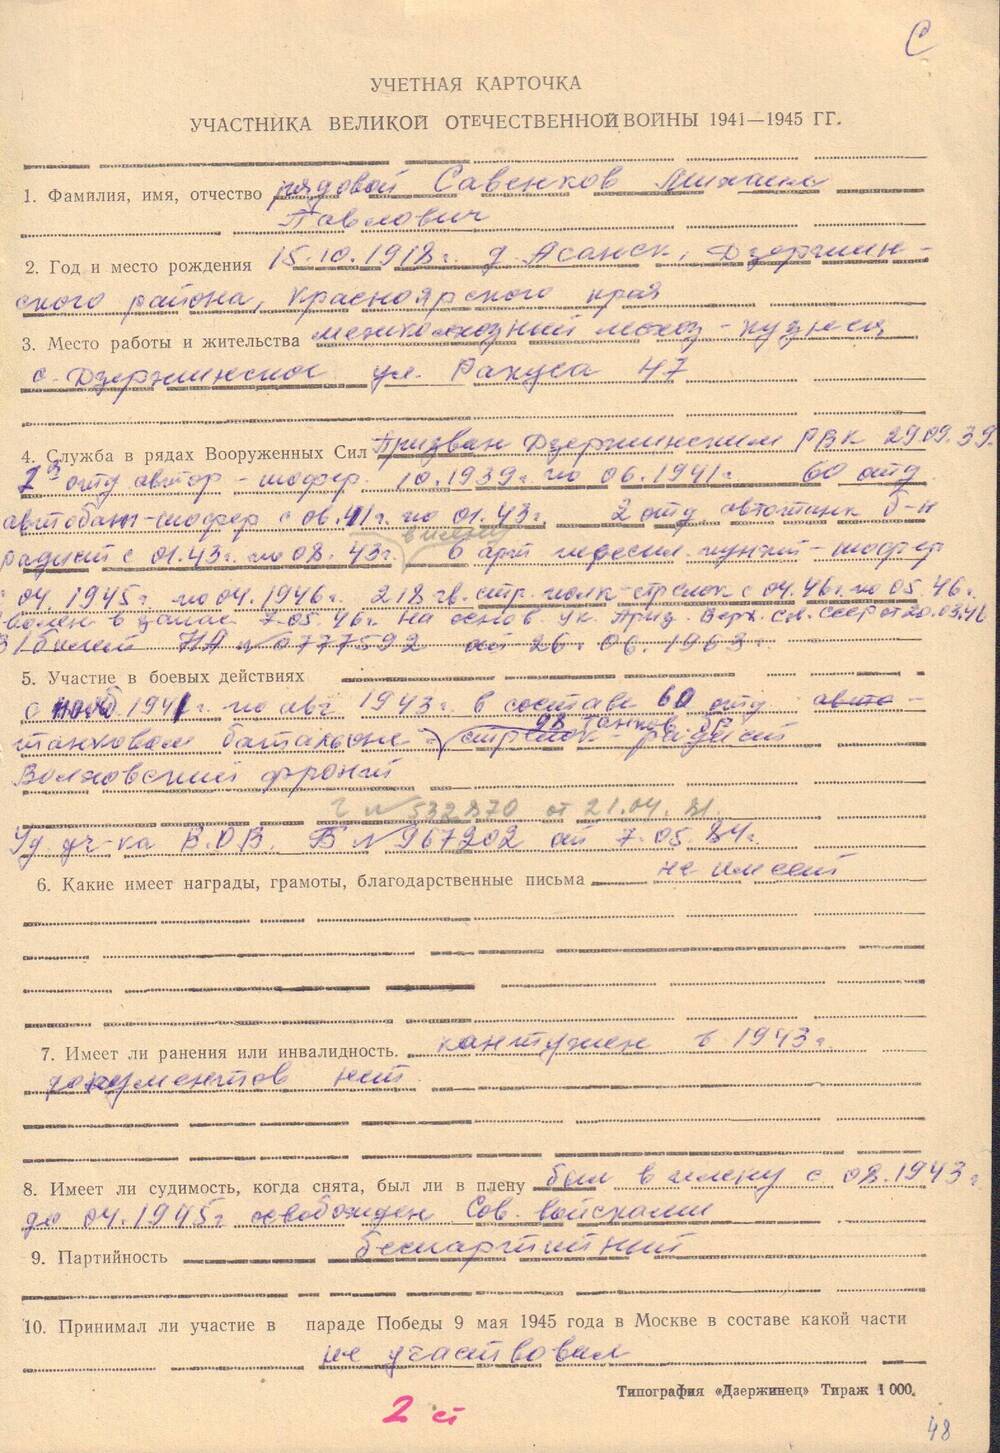 С
УЧЕТНАЯ КАРТОЧКА
УЧАСТНИКА ВЕЛИКОЙ ОТЕЧЕСТВЕННОЙ ВОЙНЫ 1941—1945 ГГ.
1. Фамилия, имя, отчество рядовой Савенков Михаил
Павлович
2. Год и место рождения 15.10.1918г. д. Асанск, Дзержин-
ского района, Красноярского края
3. Место работы и жительства межколхозный лесхоз - кузнец
с. Дзержинское ул. Ракуса 47
4. Служба в рядах Вооруженных Сил Призван Дзержинским РВК 29.09.39.
отд автор - шофер. 10.1939г. по 06.1941г. 60 отд
автобат-шофер с 06.41г. по 01.43г. 2 отд б-н
в плену
радист с 01.43г. по 08.43г. 6 арт пункт - шофер
04.1945г. по 04.1946г. 218 гв. стр. полк - стрелок с 04.46г. по 05.46г.
в запас 7.05.46г. на основ. Ук. През. Верх. Сов. СССР от 20.03.46
В/билет НА № 0777592 от 26.06.1963г.
5. Участие в боевых действиях
с нояб. 1941г. по авг 1943г. в составе 60 отд авто-
танковом батальоне - стрелок - радист
Волховский фронт
Г № 532870 от 21.04.81.
Уд. уч-ка В.О.В. Б № 967202 от 7.05.84г.
6. Какие имеет награды, грамоты, благодарственные письма не имеет
7. Имеет ли ранения или инвалидность. контужен в 1943г.
документов нет
8. Имеет ли судимость, когда снята, был ли в плену был в плену с 08.1943г
до 04.1945г освобожден Сов. войсками
9. Партийность беспартийный
10. Принимал ли участие в параде Победы 9 мая 1945 года в Москве в составе какой части
не участвовал
Типография «Дзержинец» Тираж 1 000.
2 ст
48